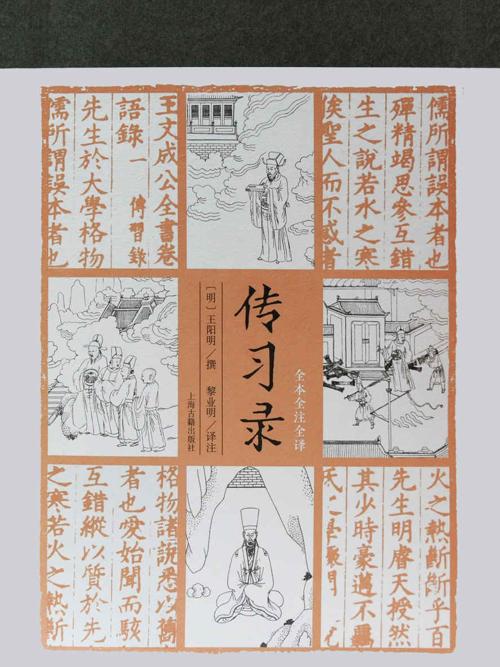 儒所謂誤本者也
殫精竭思參互錯
生之說若水之寒
俟聖人而不惑者
王文成公全書卷
語錄一 傳習錄
先生於大學格物
儒所謂誤本者也
传习录
全本全注全译
〔明〕王阳明/撰 黎业明/译注
上海古籍出版社
火之熱斷斷乎百
先生明睿天授然
其少時豪邁不羈
格物諸說悉以舊
者也愛始聞而駭
互錯縱以質於先
之寒若火之熱斷